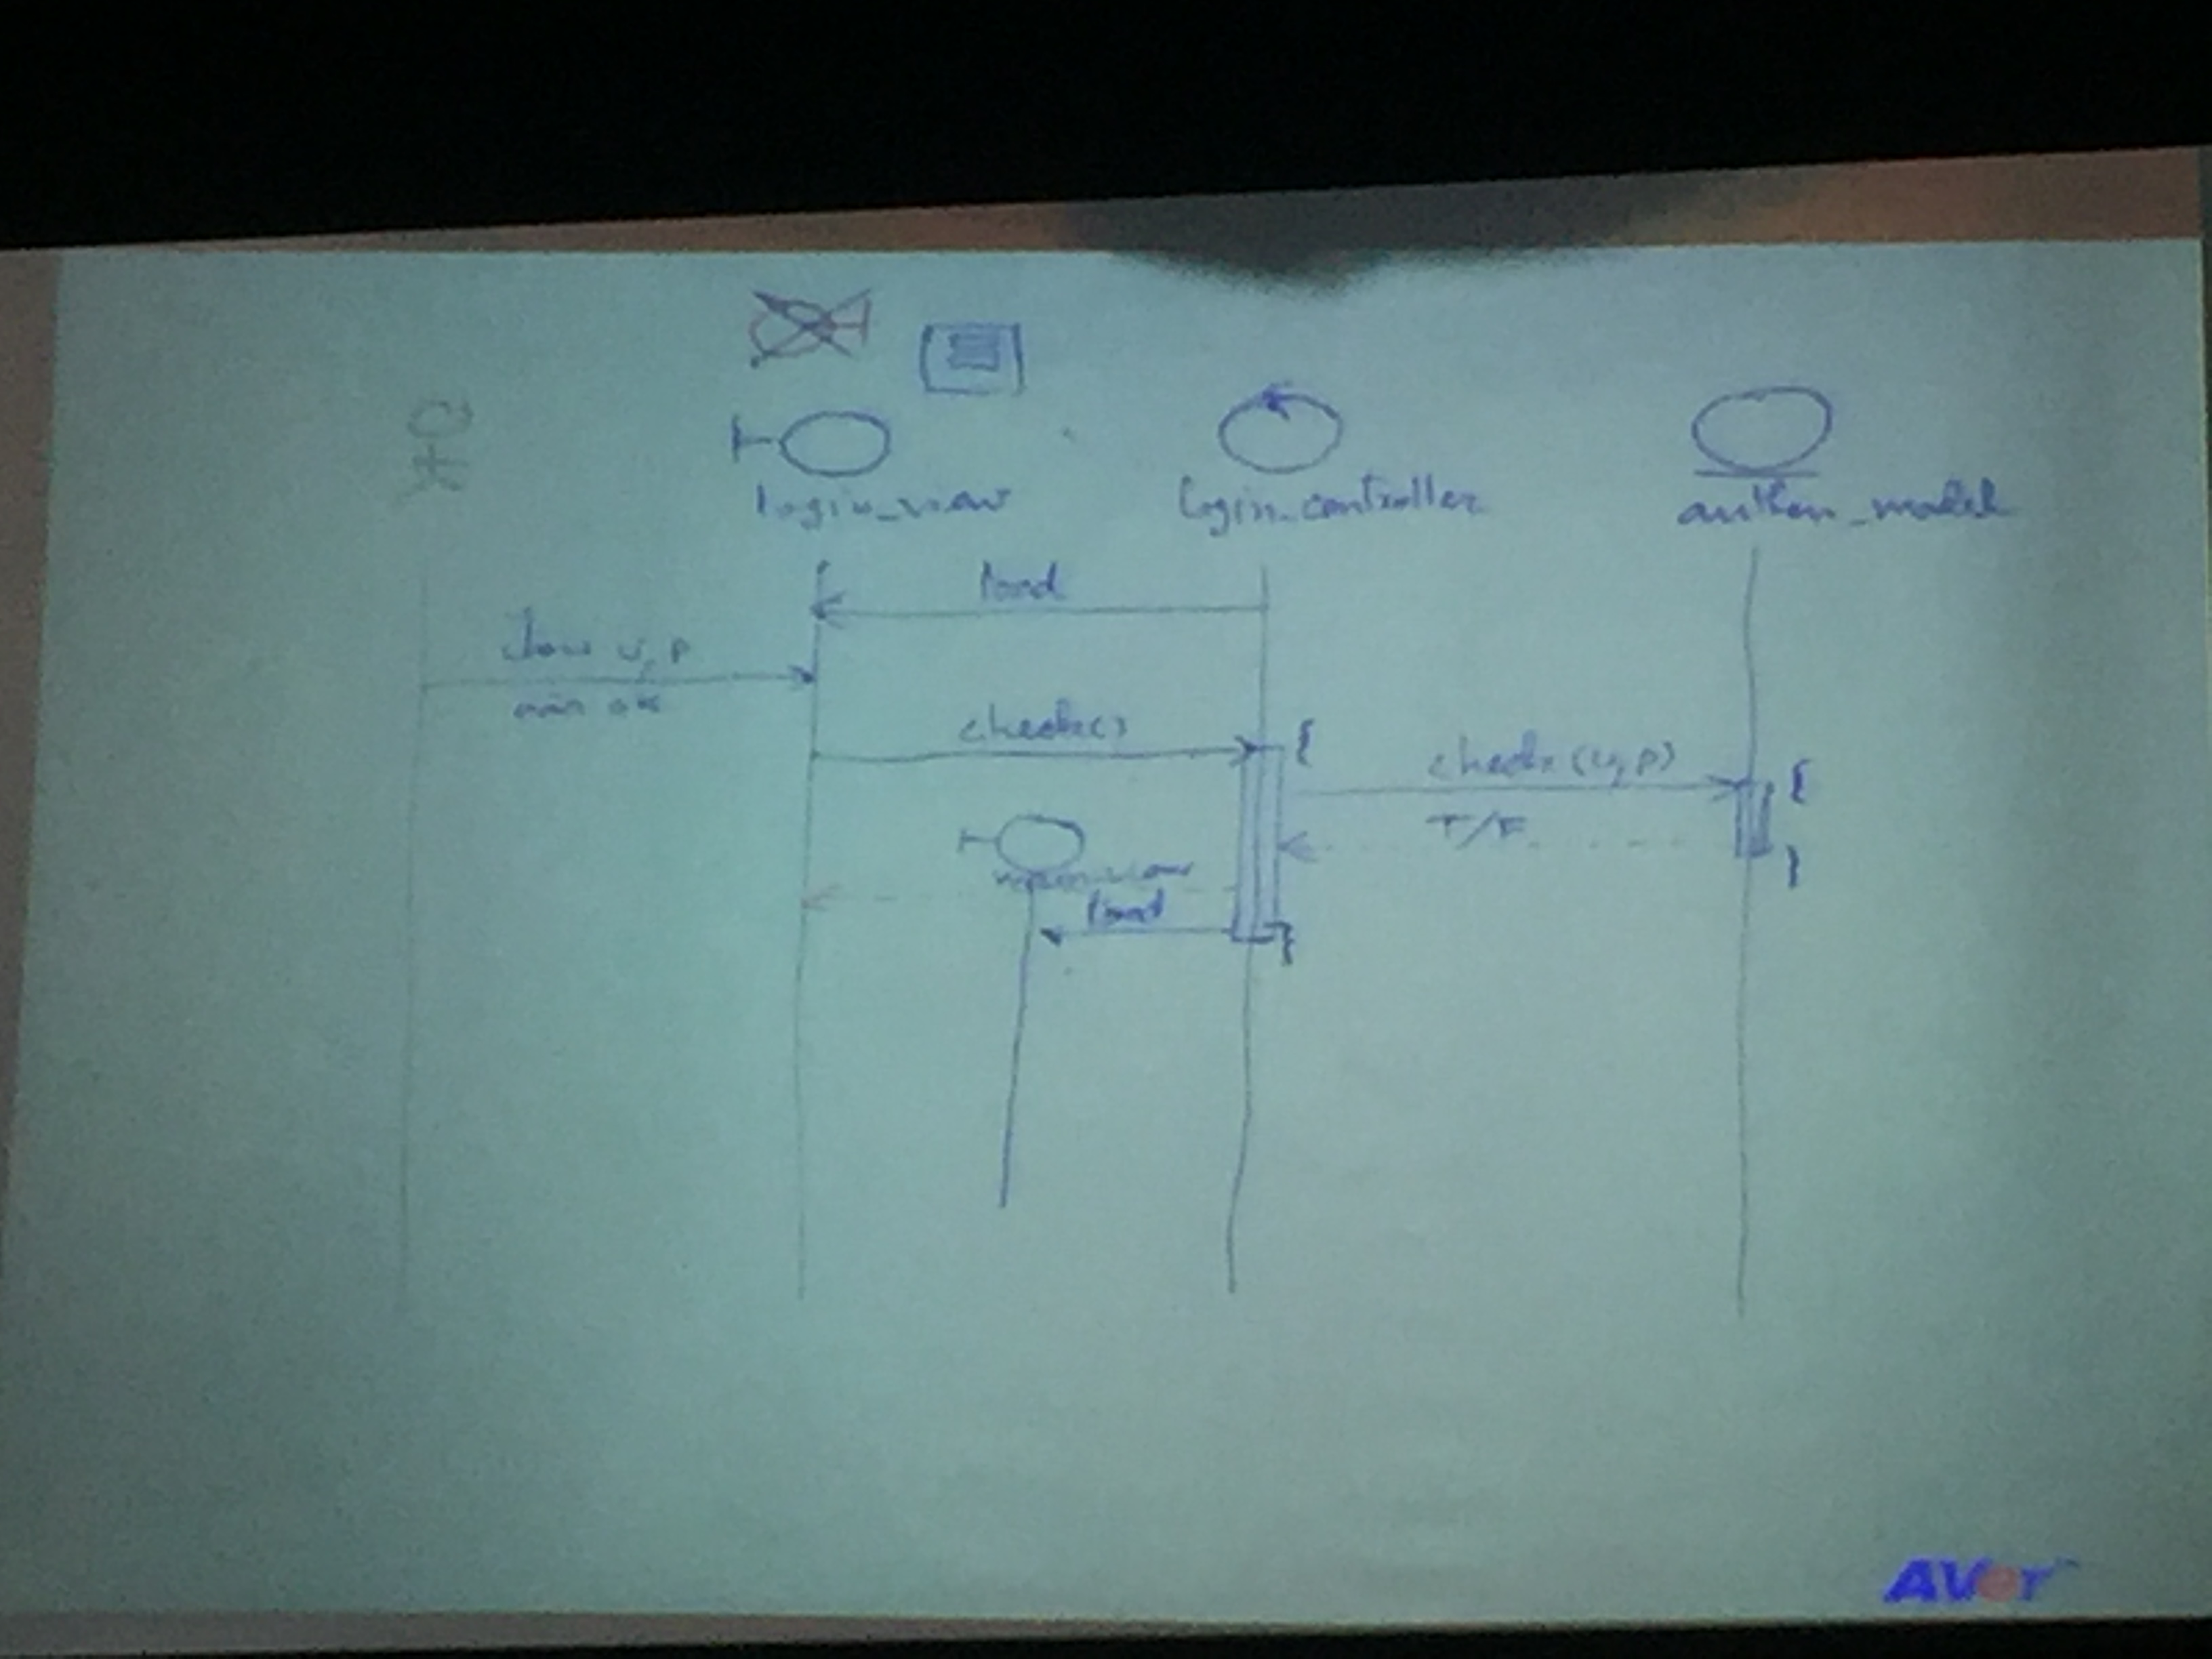 login_view
login_controller
authen_model
load
u, p
ok
check()
check(u,p)
T/F
load
AVer